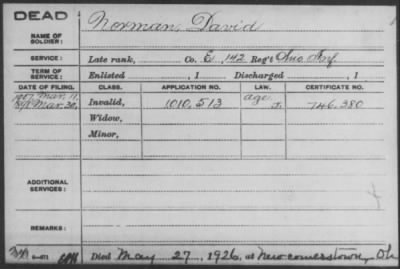 DEAD
Norman, David
NAME OF SOLDIER:
SERVICE: Late rank, Co. E, 142 Reg't Ohio Inf.
TERM OF SERVICE: Enlisted , 1 Discharged , 1
DATE OF FILING. CLASS. APPLICATION NO. LAW. CERTIFICATE NO.
Mar. 11
Mar. 20, Invalid, 1010,513 age J. 746,380
Widow,
Minor,
ADDITIONAL SERVICES:
REMARKS:
6-071 Died May 27, 1926, at Newcomerstown, Oh